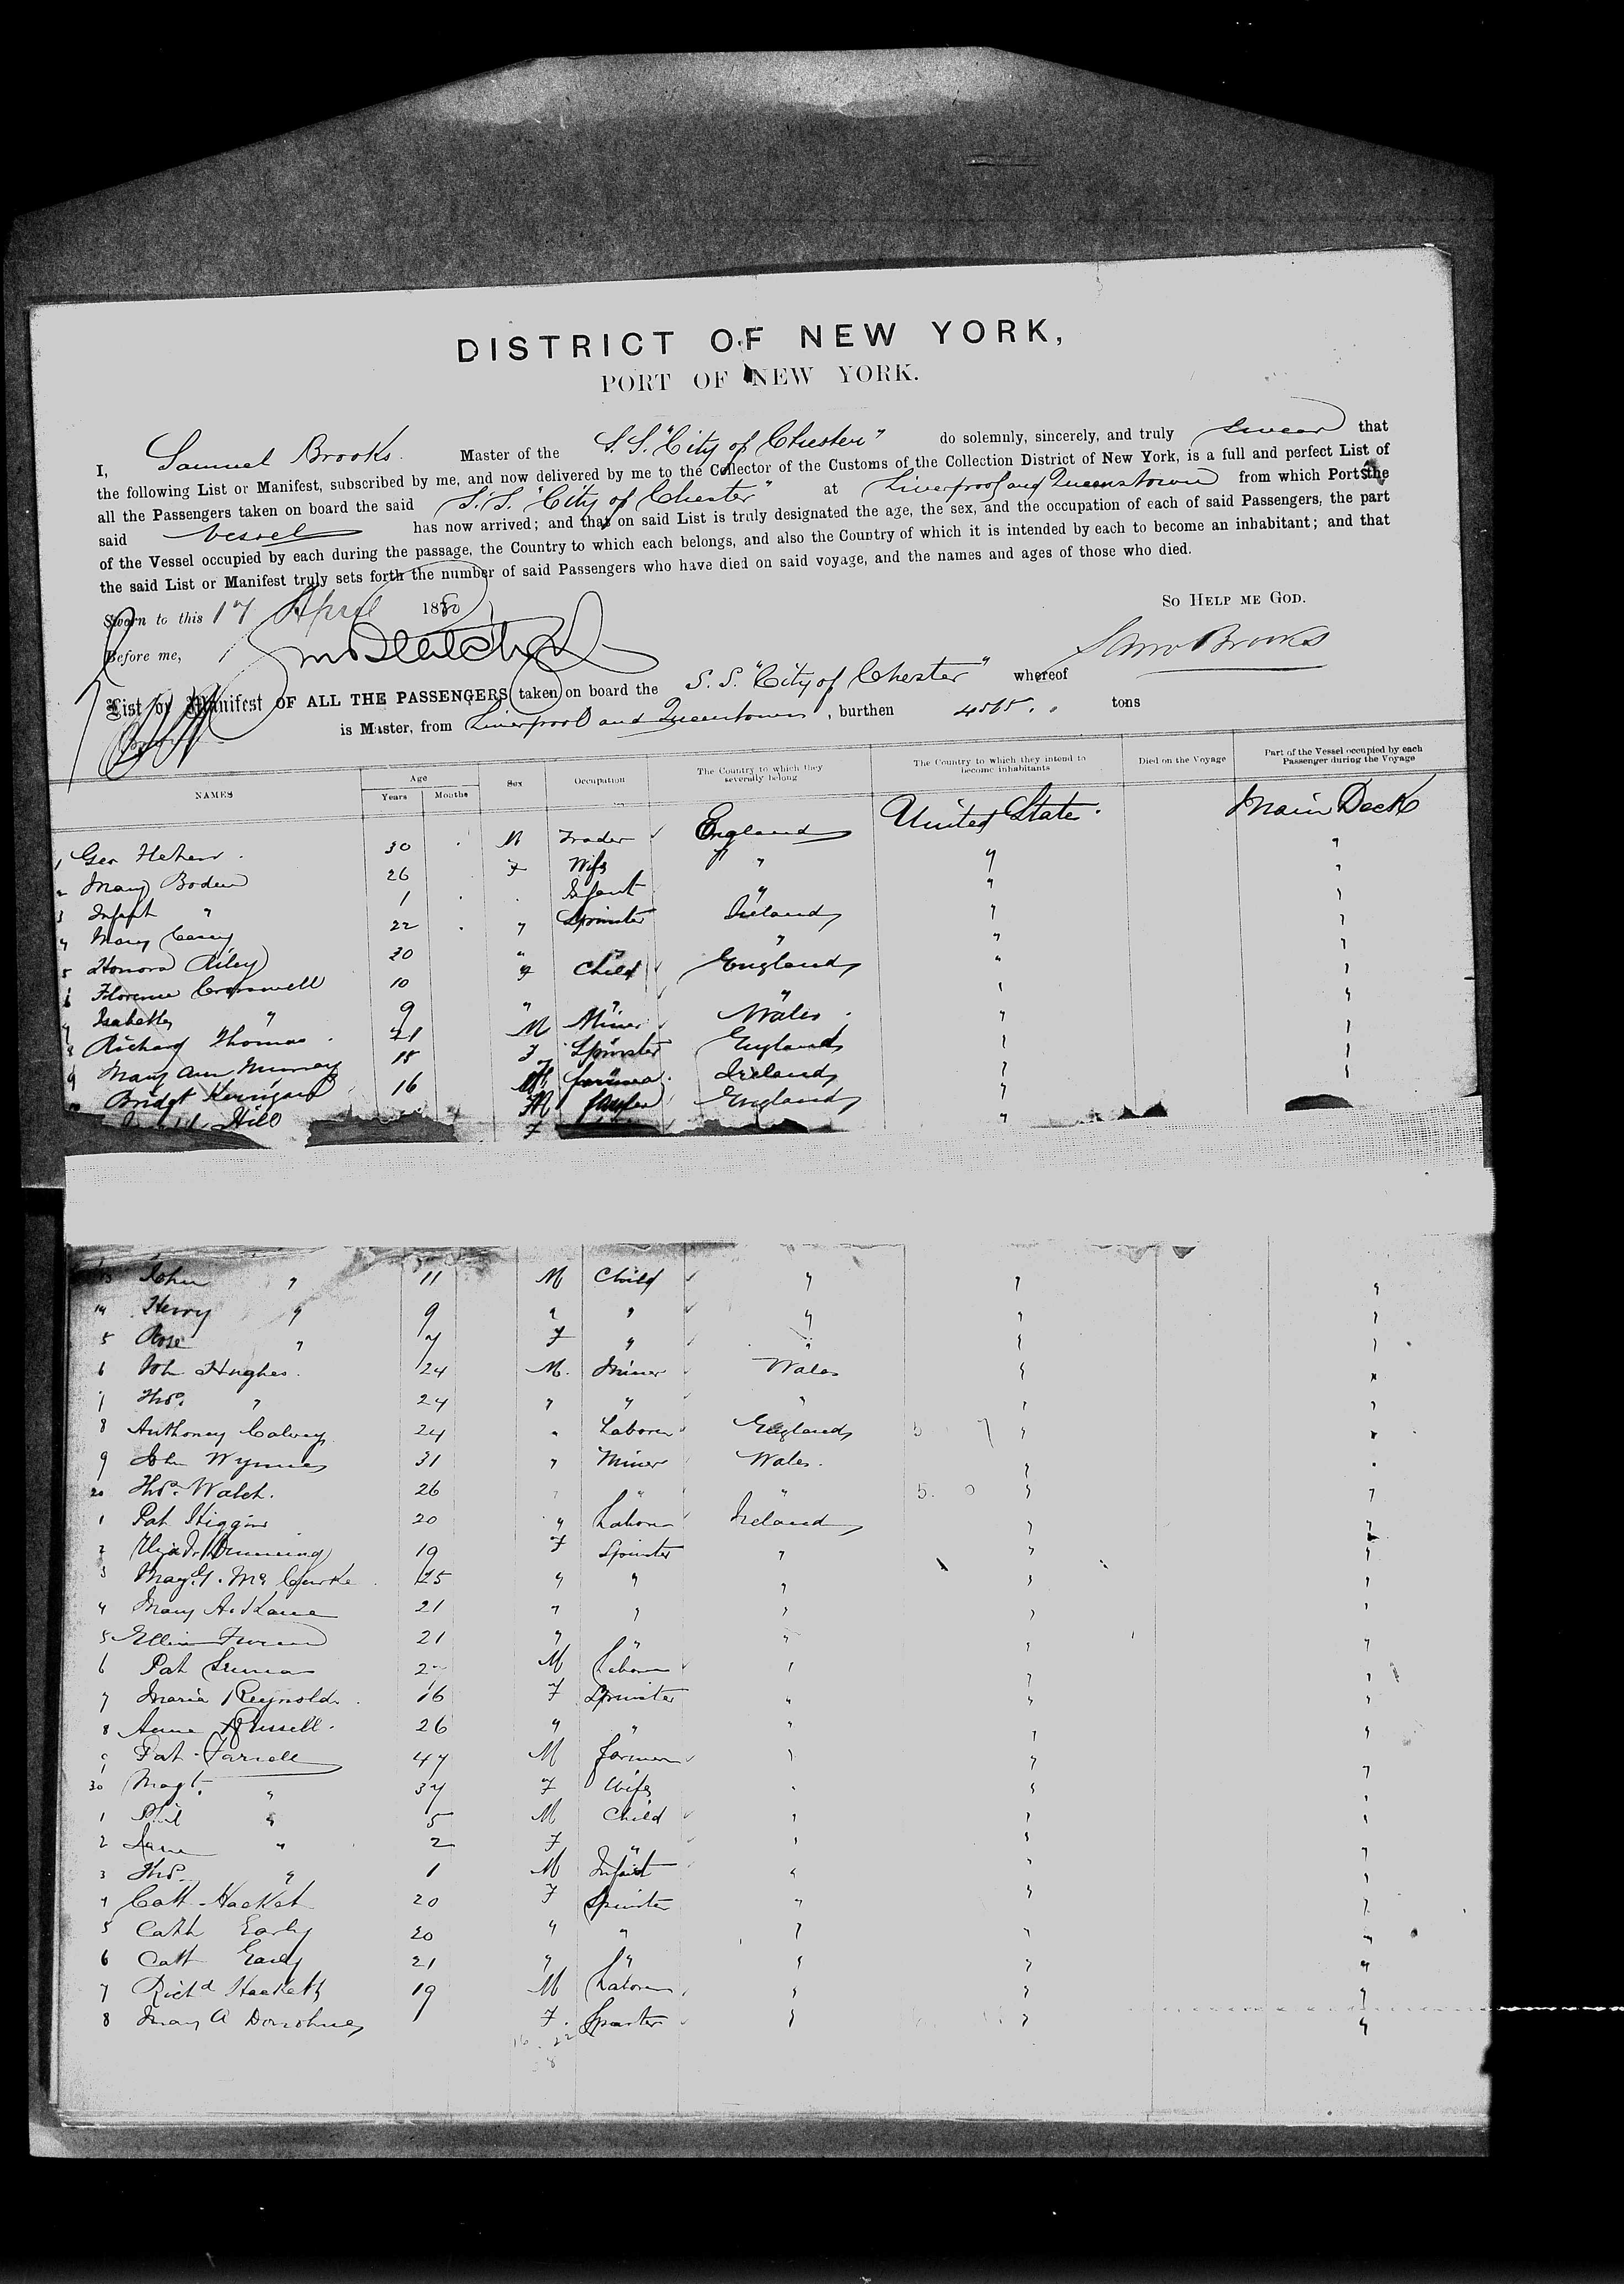 DISTRICT OF NEW YORK,
PORT OF NEW YORK.
I, Samuel Brooks. Master of the S.S. "City of Chester" do solemnly, sincerely, and truly swear that
the following List or Manifest, subscribed by me, and now delivered by me to the Collector of the Customs of the Collection District of New York, is a full and perfect List of
all the Passengers taken on board the said S.S. "City of Chester" at Liverpool and Queenstown from which Ports the
said vessel has now arrived; and that on said List is truly designated the age, the sex, and the occupation of each of said Passengers, the part
of the Vessel occupied by each during the passage, the Country to which each belongs, and also the Country of which it is intended by each to become an inhabitant; and that
the said List or Manifest truly sets forth the number of said Passengers who have died on said voyage, and the names and ages of those who died.
Sworn to this 17 April 1880 So Help me God.
Before me, Saml Brooks
List or Manifest OF ALL THE PASSENGERS taken on board the S.S. "City of Chester" whereof
is Master, from Liverpool and Queenstown, burthen 4565 tons
NAMES Age Years Months Sex Occupation The Country to which they severally belong The Country to which they intend to become inhabitants Died on the Voyage Part of the Vessel occupied by each Passenger during the Voyage
1 Geo 30 M Trader England United State. Main Deck
2 Mary Boden 26 F Wife " " "
3 Infant " 1 Infant " " "
4 Mary Carey 22 " Spinster Ireland " "
5 Honora Riley 20 " " " " "
6 Florence Cromwell 10 F Child England " "
7 Isabella " 9 " " " " "
8 Richard Thomas 21 M Miner Wales. " "
9 Mary Ann Murray 18 F Spinster England " "
10 Bridget Kerrigan 16 " " Ireland " "
Hill M England "
F
13 John " 11 M Child " " "
14 Henry " 9 " " " " "
5 Rose " 7 F " " " "
6 Joh Hughes. 24 M. Miner Wales " "
7 Thos. " 24 " " " " "
8 Anthoney Calvey 24 " Laborer England " "
9 John Wynnes 31 " Miner Wales. " "
20 Thos. Walch. 26 " " " " "
1 Pat Higgins 20 " Labore Ireland " "
2 19 F Spinster " " "
3 Magt. Mc Gurke 25 " " " " "
4 Mary A. Kane 21 " " " " "
5 Ellen 21 " " " " "
6 Pat M Labore " " "
7 Maria Reynolds. 16 F Spinster " " "
8 Anne Russell. 26 " " " " "
9 Pat Farrell 47 M farmer " " "
30 Magt. " 37 F Wife " " "
1 Phil " 5 M Child " " "
2 Jane " 2 F " " " "
3 Thos. " 1 M Infant " " "
4 Cath Hacket 20 F Spinster " " "
5 Cath Early 20 " " " " "
6 Cath Early 21 " " " " "
7 Richd Hackett 19 M Labore " " "
8 Mary A Donohue F. Spinster " " "